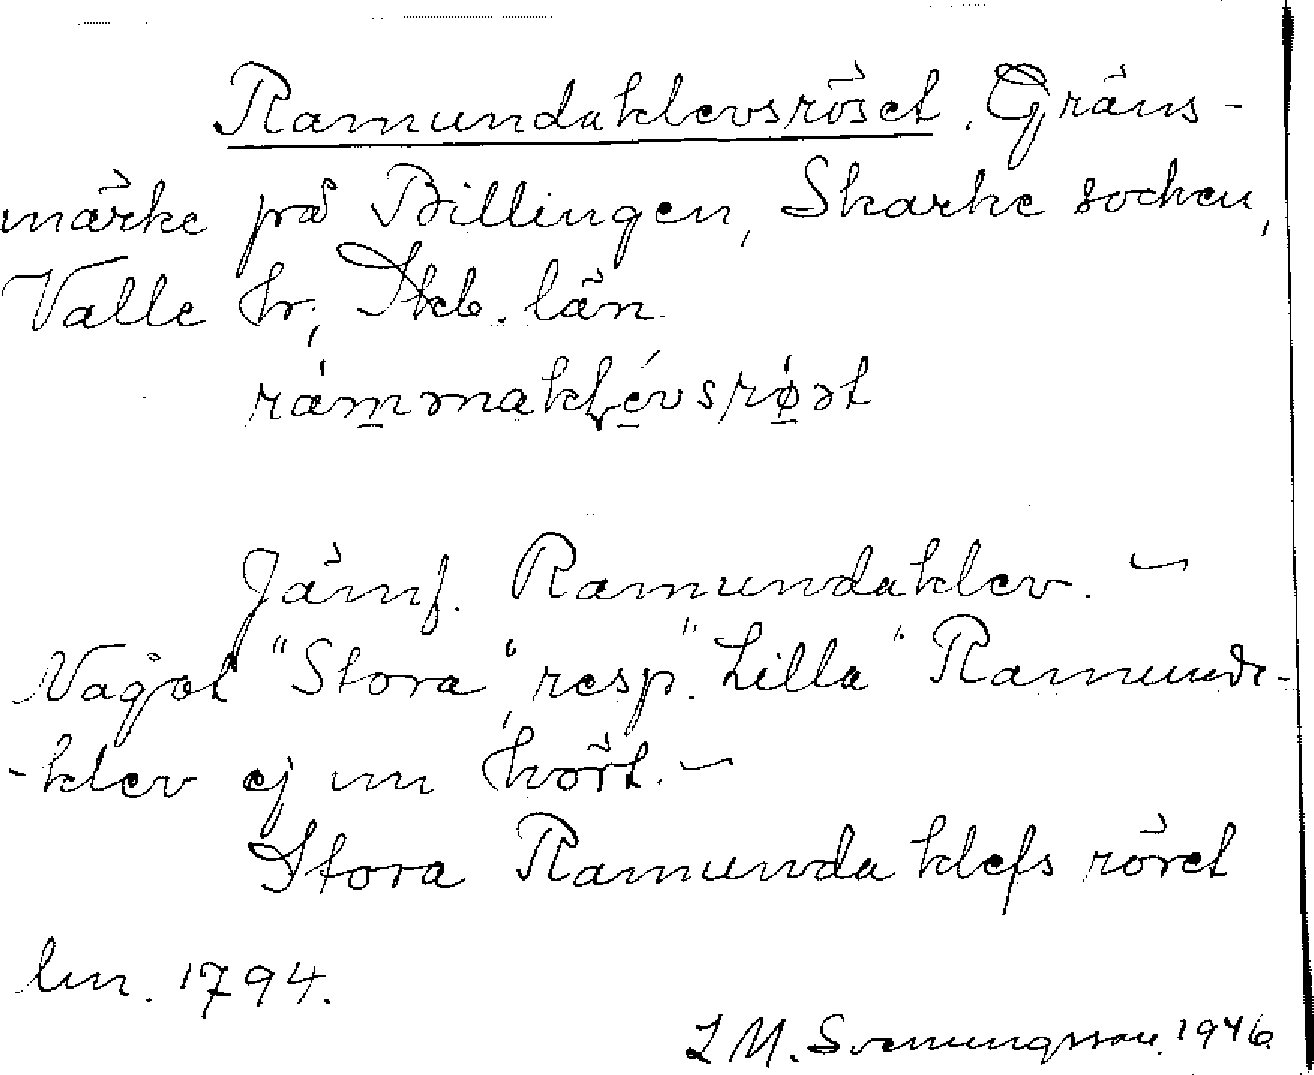 Ramundaklevsröset. Gräns-
märke på Billingen, Skarke socken,
Valle hr, Skb. län.
Jämf. Ramundaklev. –
Något "Stora", resp. "Lilla" Ramunde-
-klev ej nu hört. –
Stora Ramunda klefs röret
lm. 1794.
L M. Svenungsson. 1946